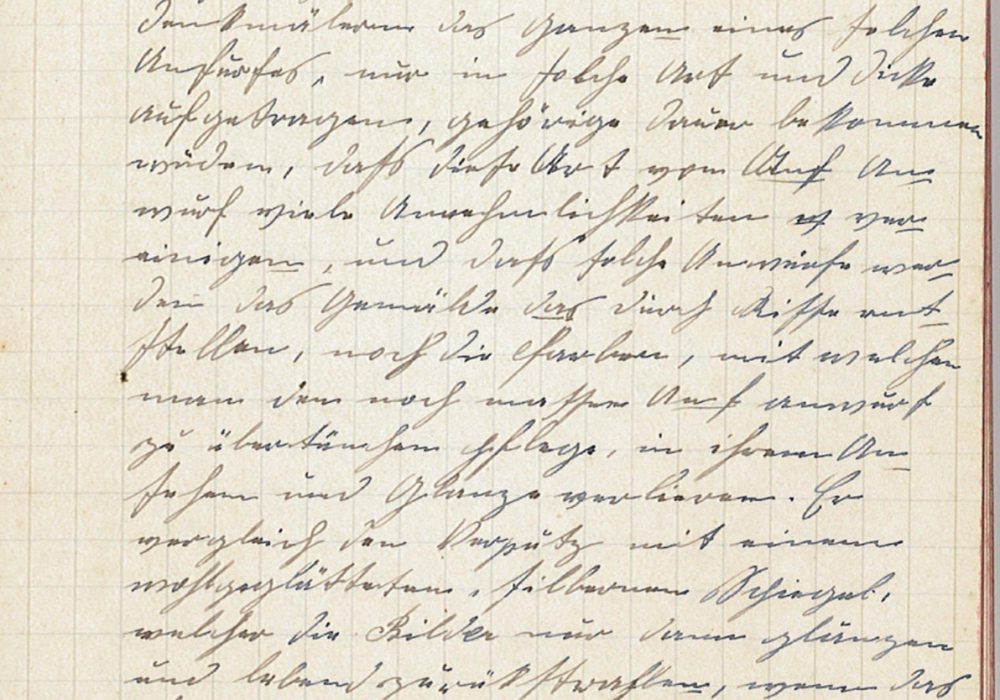 Denkmälern das Ganzen eines solchen
Anfurfes, nur in solche Art und Dicke
aufgetragen, gehörige Dauer bekommen
würden, dass diese Art vom Auf An
wurf viele Annehmlichkeiten ver
einigen, und dass solche Anwürfe wer
den das Gemälde das durch Risse ent
stellen, noch die Farben, mit welchen
man den noch nassen Anwurf
zu übertünchen pflege, in ihrem An
sehen und Glanze verlieren. Er
vergleich den Verputz mit einem
wohlgeglätteten, silbernen Spiegel,
welcher die Bilder nur dann glänzen
und lebend zurükstrahlen, wenn das